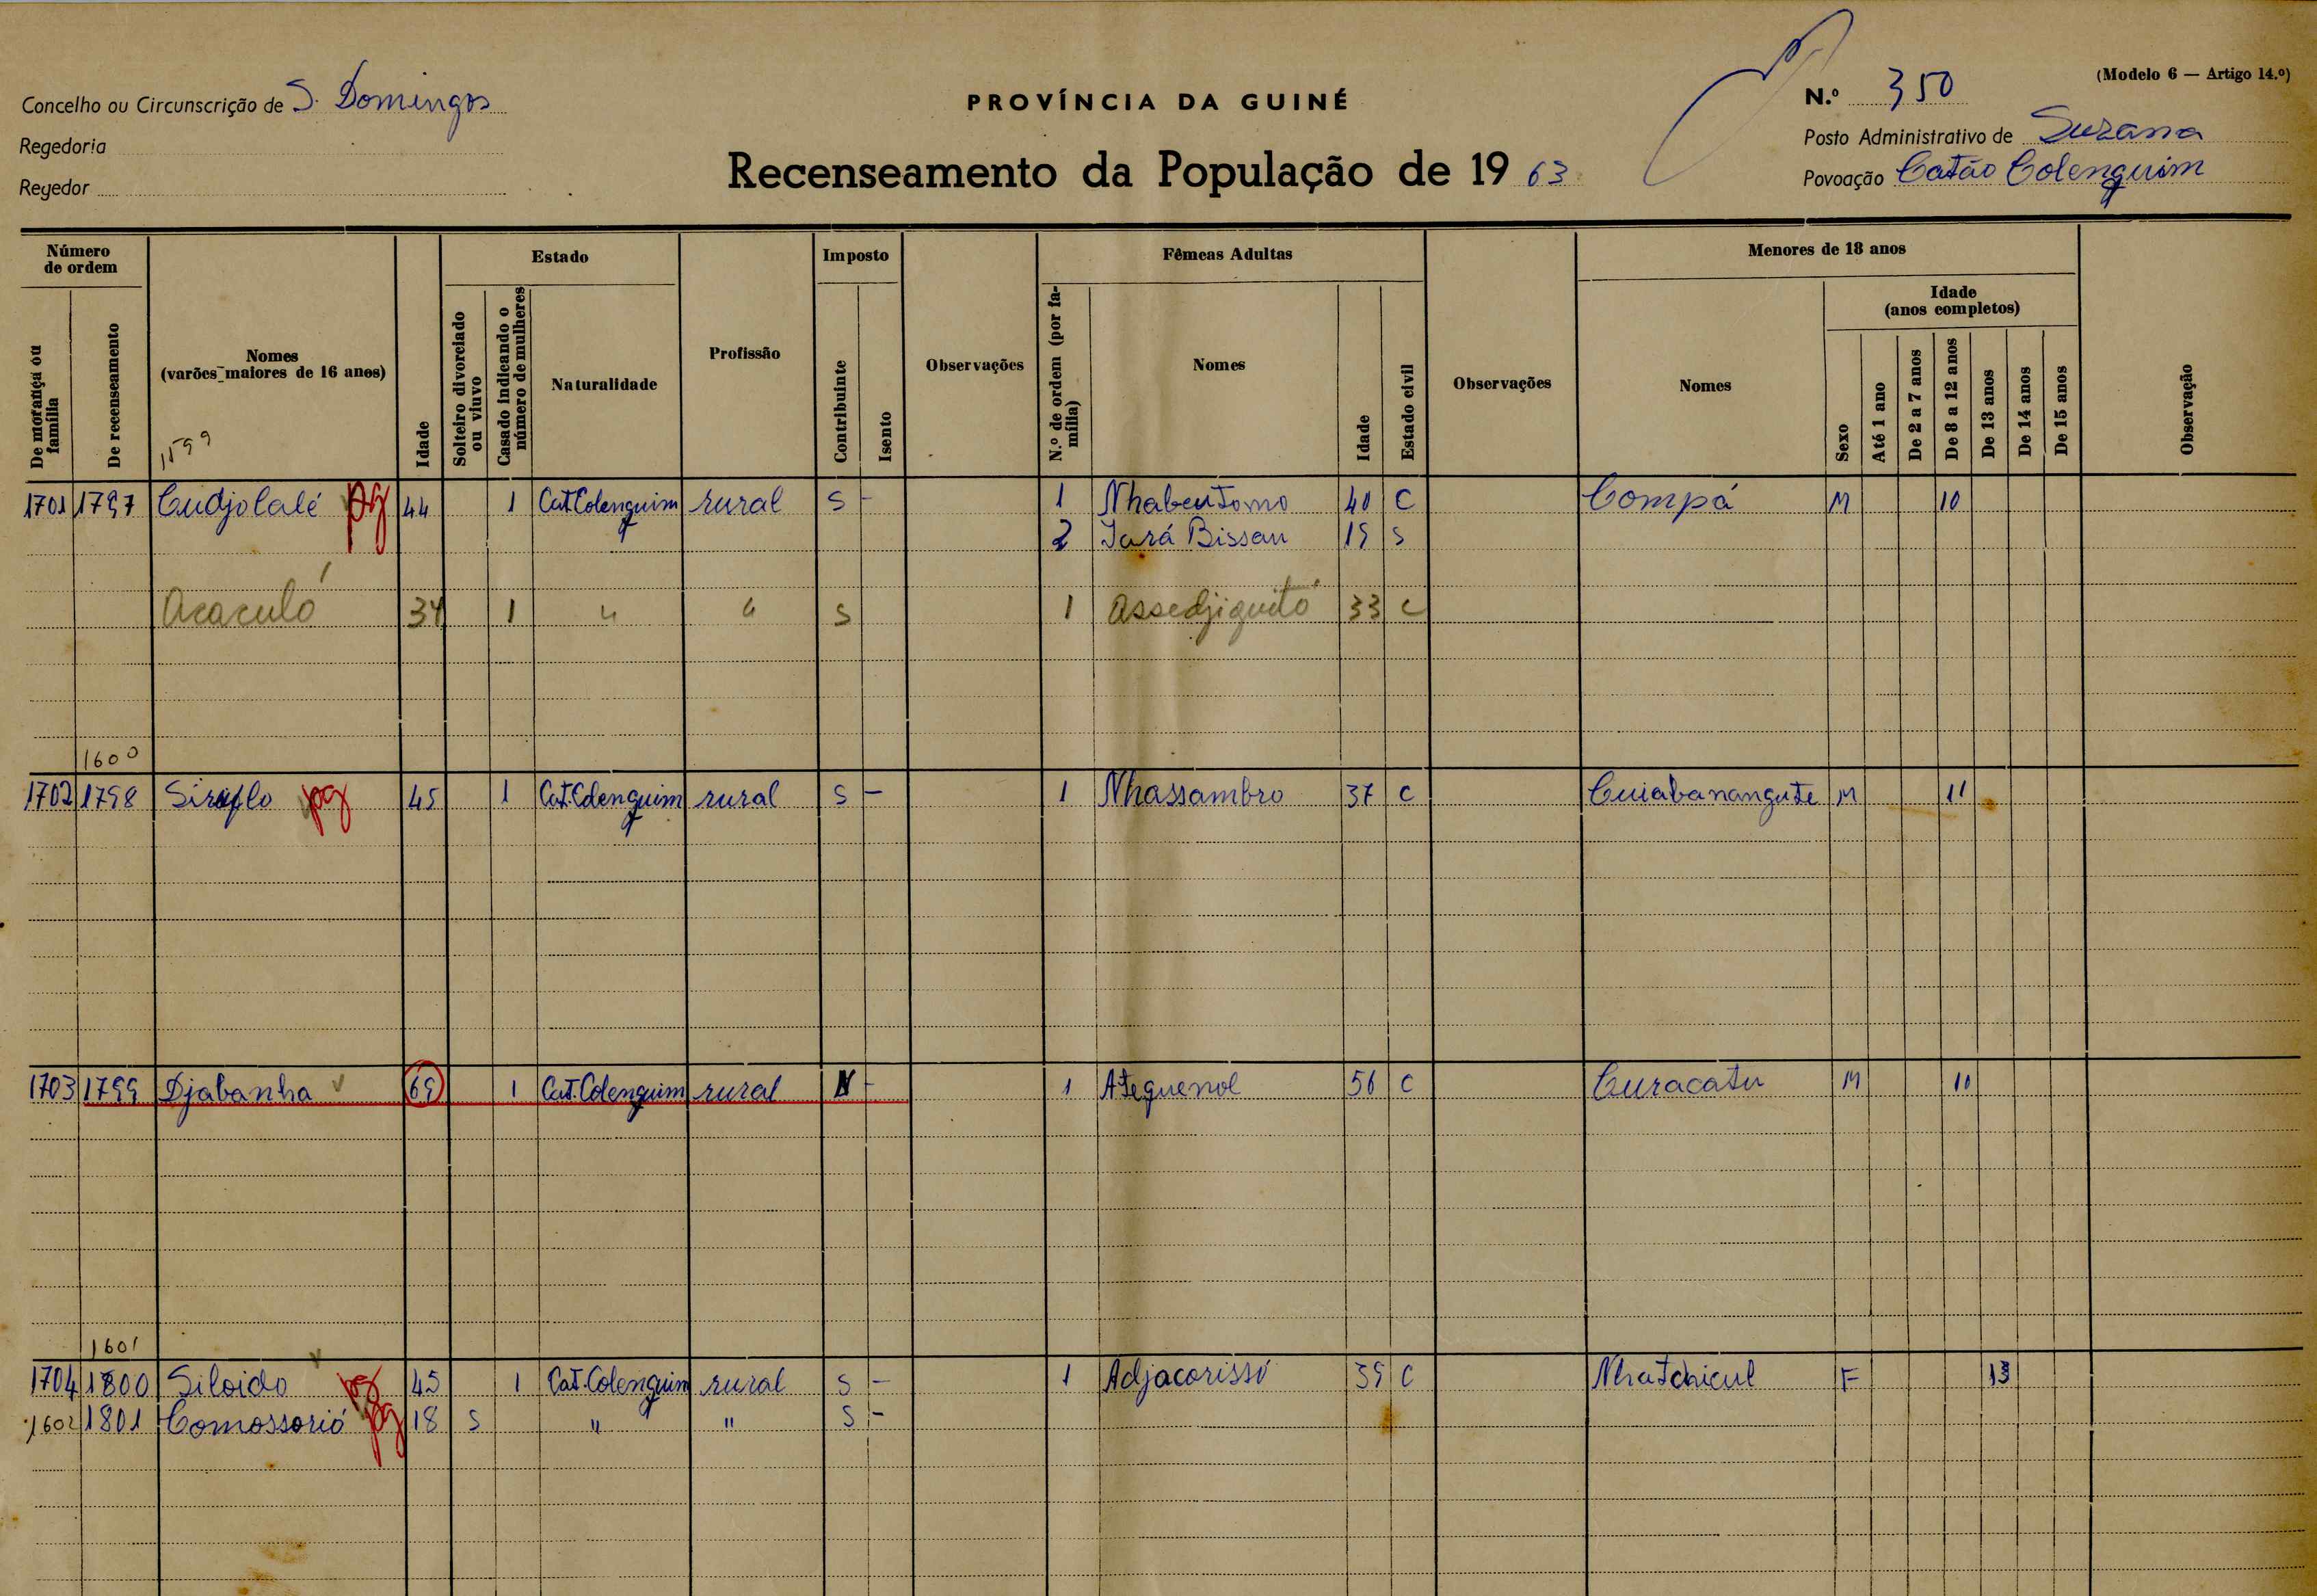 (Modelo 6 — Artigo 14.º)
Concelho ou Circunscrição de S. Domingos
PROVÍNCIA DA GUINÉ
N.º 350
Regedoria
Posto Administrativo de Suzana
Regedor
Recenseamento da População de 1963
Povoação Catão Colenguim
Número de ordem
Estado
Imposto
Fêmeas Adultas
Menores de 18 anos
Idade (anos completos)
De morança ou família
De recenseamento
Nomes (varões maiores de 16 anos)
Idade
Solteiro divorciado ou viuvo
Casado indicando o número de mulheres
Naturalidade
Profissão
Contribuinte
Isento
Observações
N.º de ordem (por família)
Nomes
Idade
Estado civil
Observações
Nomes
Sexo
Até 1 ano
De 2 a 7 anos
De 8 a 12 anos
De 13 anos
De 14 anos
De 15 anos
Observação
1599
1701 1797 Cudjolalé pg 44 1 Cat.Colenguim rural S - 1 Nhabentomo 40 C Compá M 10
2 Jará Bissau 19 S
Acaculó 34 1 " " S 1 Assedjiquitó 33 C
1600
1702 1798 Siraflo pg 45 1 Cat.Colenguim rural S - 1 Nhassambro 37 C Cuiabanangute M 11
1703 1799 Djabanha 69 1 Cat.Colenguim rural N - 1 Ateguenol 56 C Curacatu M 10
1601
1704 1800 Siloido pg 45 1 Cat.Colenguim rural S - 1 Adjacorissó 39 C Nhatchicul F 13
1602 1801 Comossorió pg 18 S " " S -